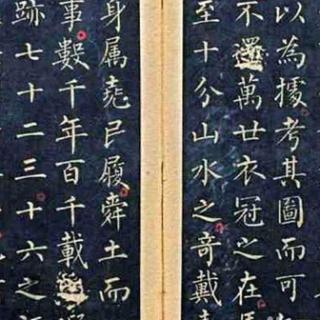 以為據考其圖而可
不還萬世衣冠之在
至十分山水之奇戴
身属堯巳履舜土而
事數千年百千載
跡七十二三十六之